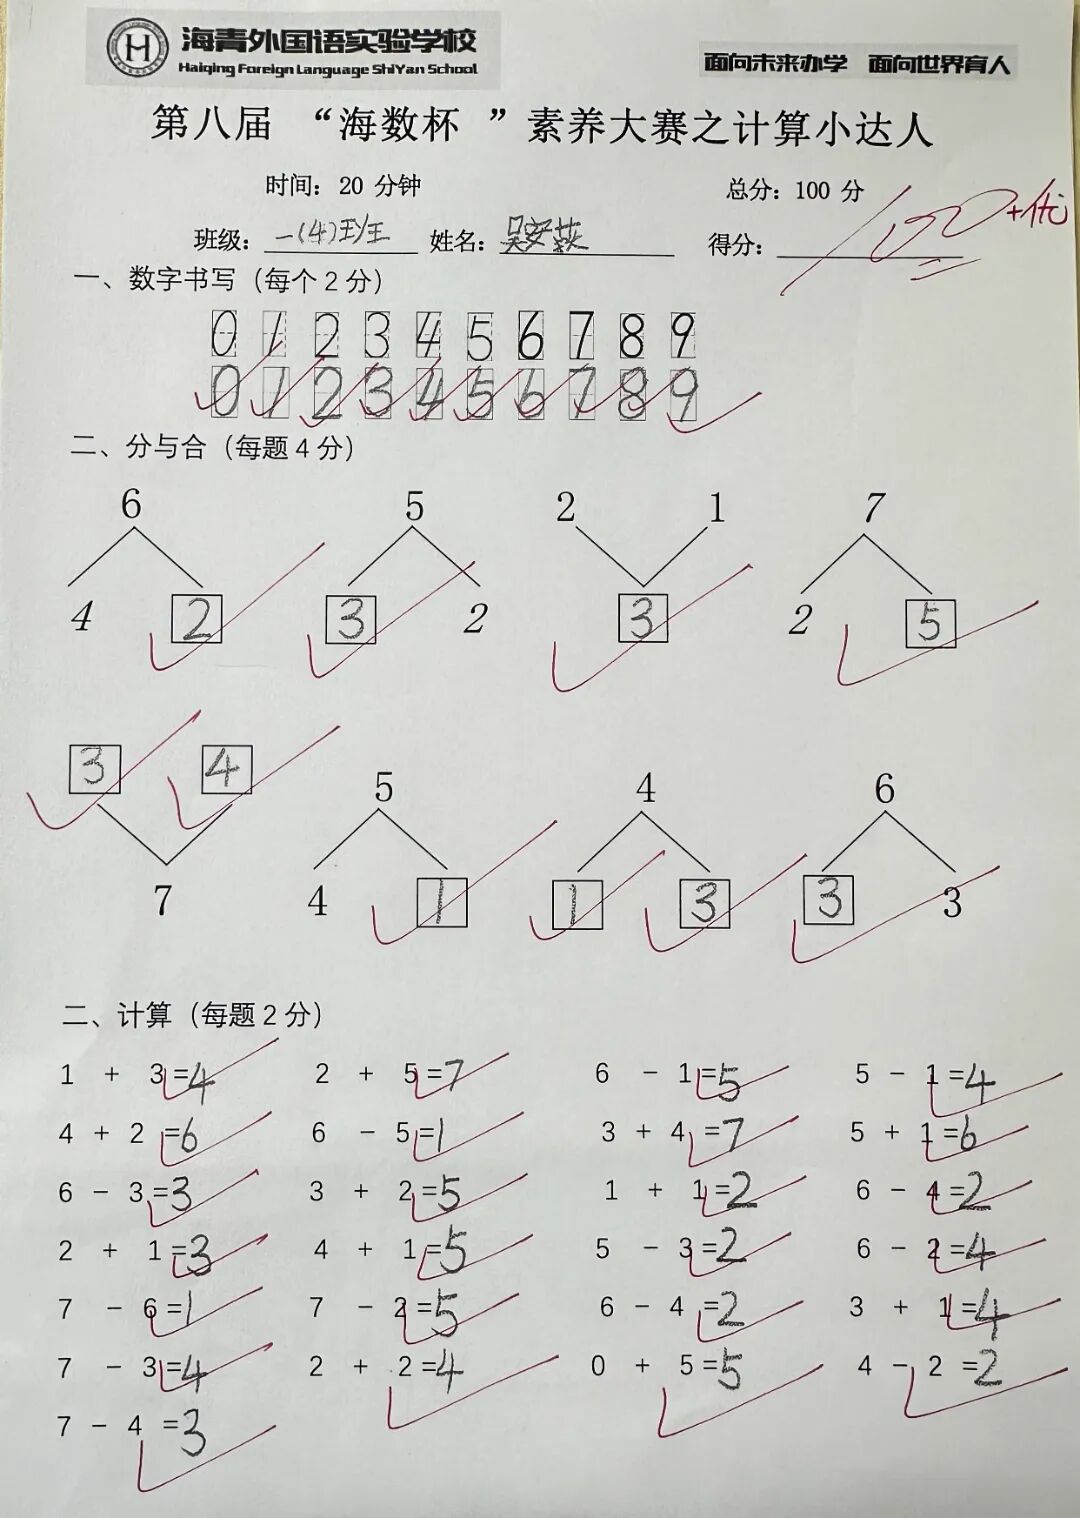 海青外国语实验学校
Haiqing Foreign Language ShiYan School
面向未来办学 面向世界育人
第八届 “海数杯 ”素养大赛之计算小达人
时间：20 分钟 总分：100 分
班级：一(4)班 姓名： 得分：100+优
一、数字书写（每个 2 分）
0 1 2 3 4 5 6 7 8 9
0 1 2 3 4 5 6 7 8 9
二、分与合（每题 4 分）
6 5 2 1 7
4 2 3 2 3 2 5
3 4 5 4 6
7 4 1 1 3 3 3
二、计算（每题 2 分）
1 + 3=4 2 + 5=7 6 - 1=5 5 - 1=4
4 + 2 =6 6 - 5=1 3 + 4 =7 5 + 1=6
6 - 3=3 3 + 2=5 1 + 1=2 6 - 4=2
2 + 1=3 4 + 1=5 5 - 3=2 6 - 2=4
7 - 6=1 7 - 2=5 6 - 4 =2 3 + 1=4
7 - 3=4 2 + 2=4 0 + 5=5 4 - 2 =2
7 - 4 =3